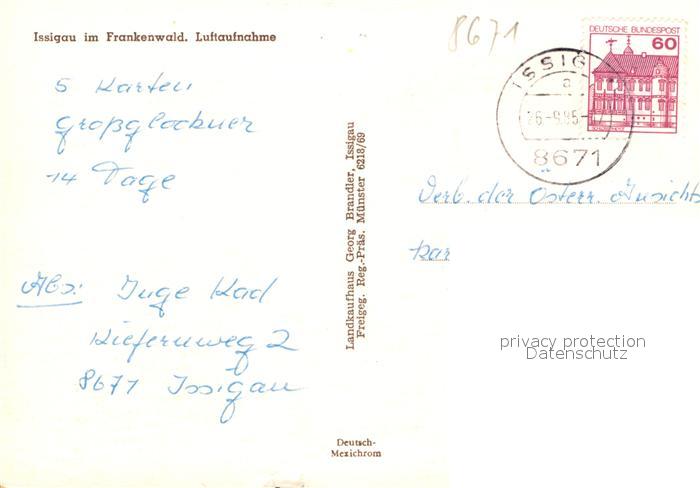 Issigau im Frankenwald. Luftaufnahme
8671
5 Karten
Großglockner
14 Tage
Abs: Inge Kad
Kiefernweg 2
8671 Issigau
Landkaufhaus Georg Brandler, Issigau
Freigeg. Reg.-Präs. Münster 6218/69
Deutsch-
Mexichrom
DEUTSCHE BUNDESPOST
60
ISSIG
a
26.-9.85
8671
Verb. der Österr. Ansichts
kar
privacy protection
Datenschutz